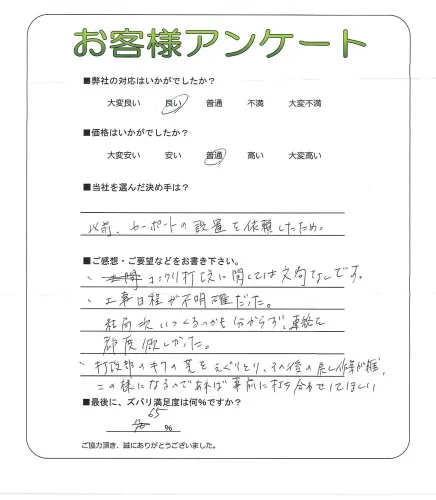 お客様アンケート
■弊社の対応はいかがでしたか?
大変良い 良い 普通 不満 大変不満
■価格はいかがでしたか?
大変安い 安い 普通 高い 大変高い
■当社を選んだ決め手は?
以前、カーポートの設置を依頼したため。
■ご感想・ご要望などをお書き下さい。
・ コンクリ打ちに関しては文句なしです。
・工事日程が不明確だった。
結局次いつくるのかも分からず、連絡を
都度欲しかった。
・打設部のキワの芝をえぐりとり、その後の戻し作業が雑、
この様になるのであれば事前に打ち合わせしてほしい
■最後に、ズバリ満足度は何%ですか?
65
%
ご協力頂き、誠にありがとうございました。